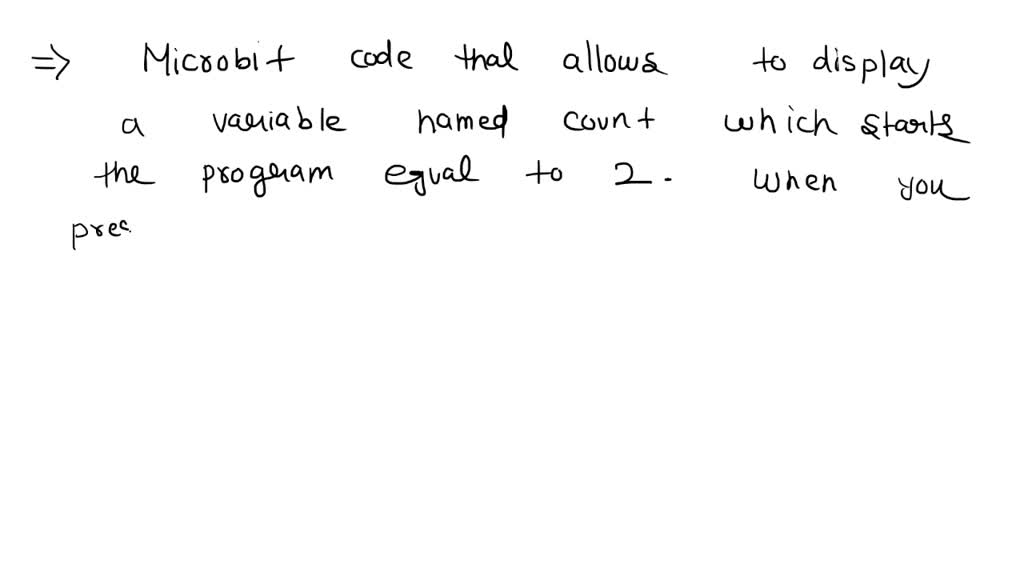 => Microbit code that allows to display
a variable named count which starts
the program equal to 2. When you
pres